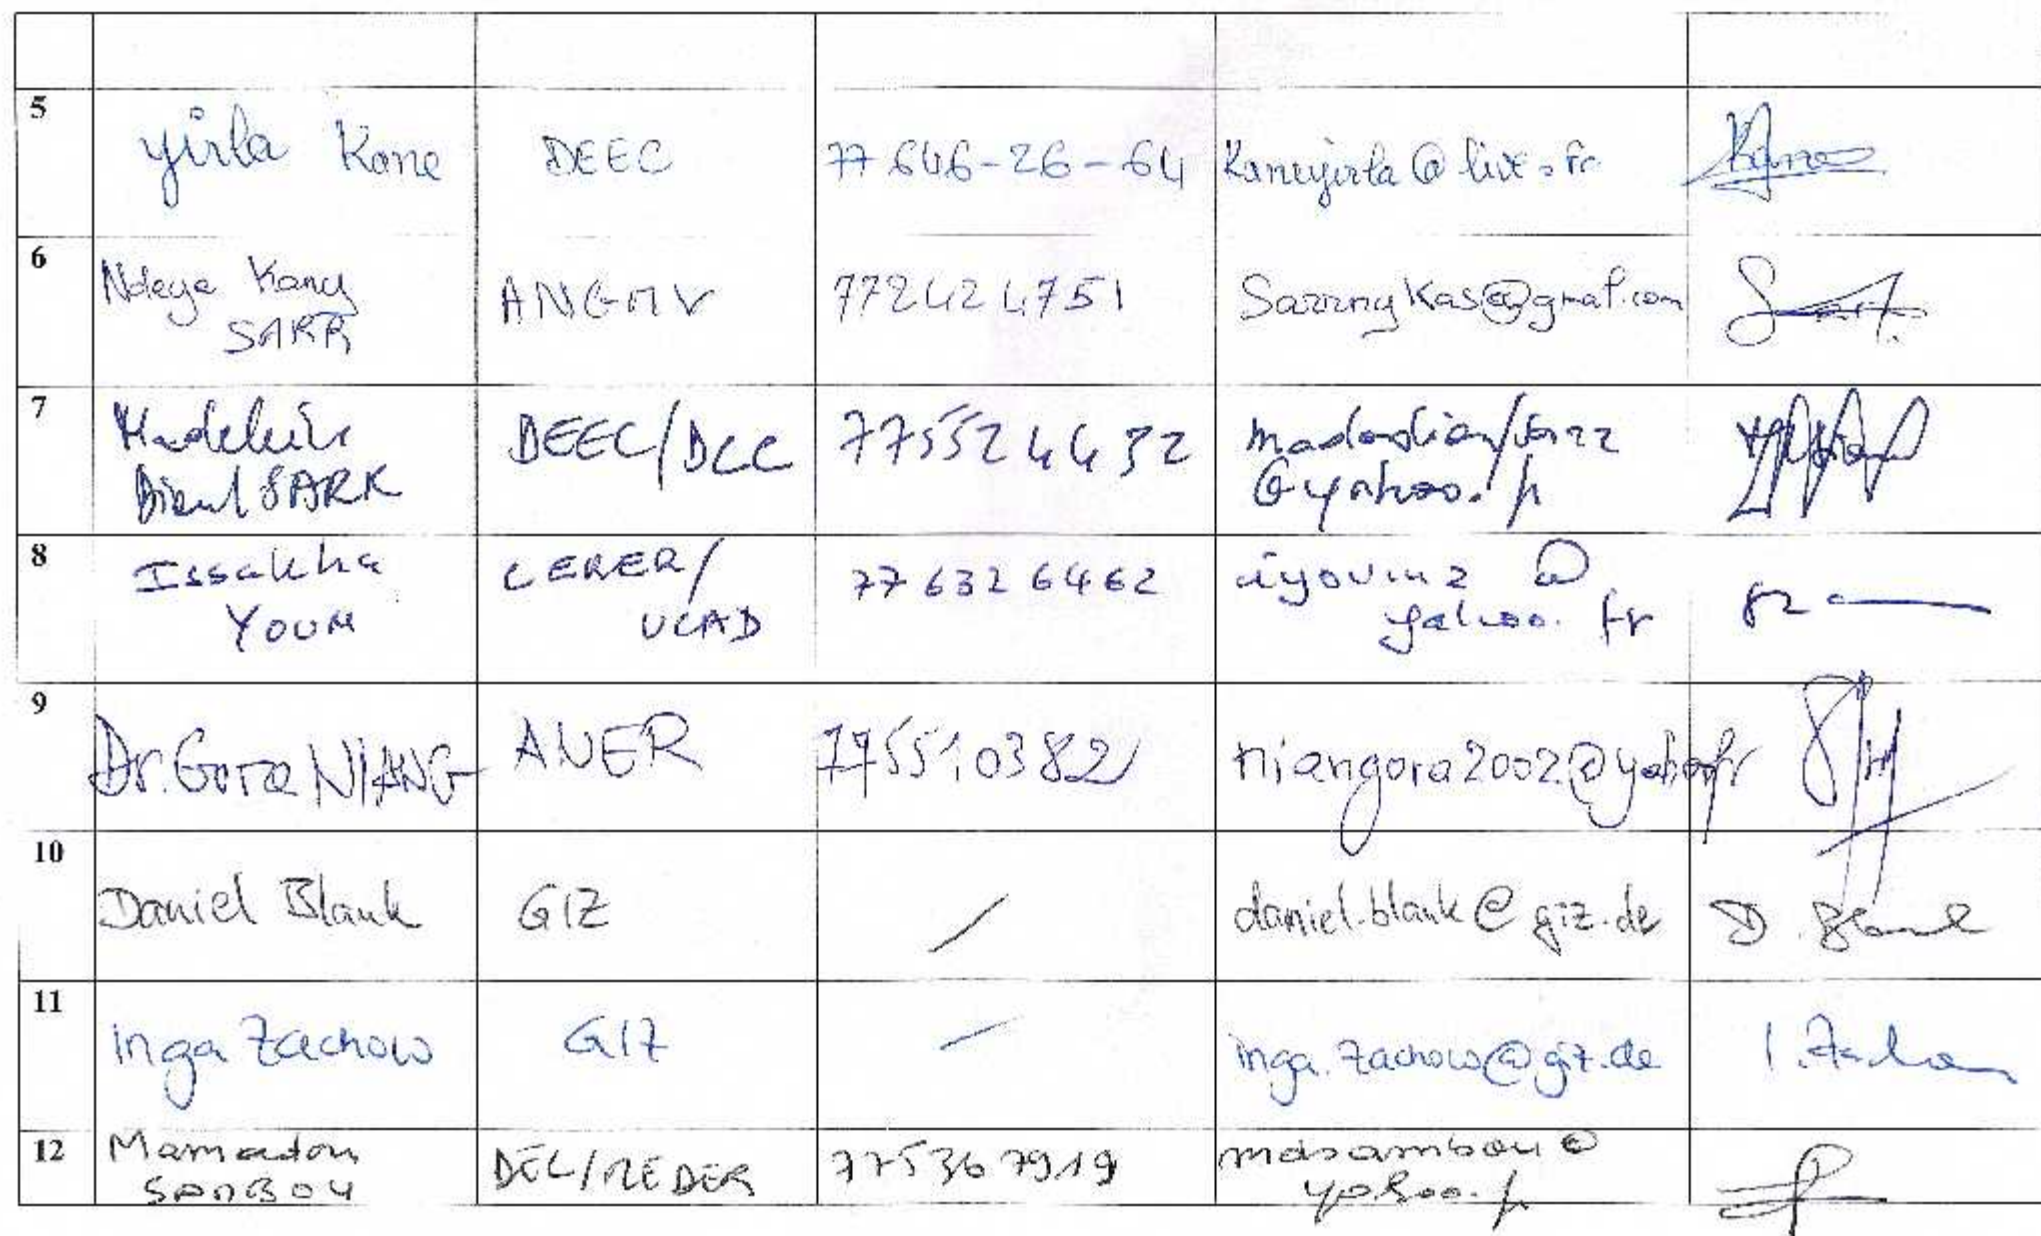 5 yirla Kane DEEC 77 646-26-64 Kaneyirla@live.fr
6 Ndeye Kany SARR ANGMV 772424751 @gmail.com
7 Madeleine Diouf SARR DEEC/DCC 775524432 @yahoo.fr
8 Issakha YOUM CERER/UCAD 776326462 iyoum2@yahoo.fr
9 Dr. Gora NIANG ANER 775510382 niangora2002@yahoo.fr
10 Daniel Blank GIZ / daniel.blank@giz.de D. Blank
11 Inga Zachow GIZ / inga.zachow@giz.de I. Zachow
12 Mamadou SAMBOU DEL/MEDER 775367919 mdsambou@yahoo.fr